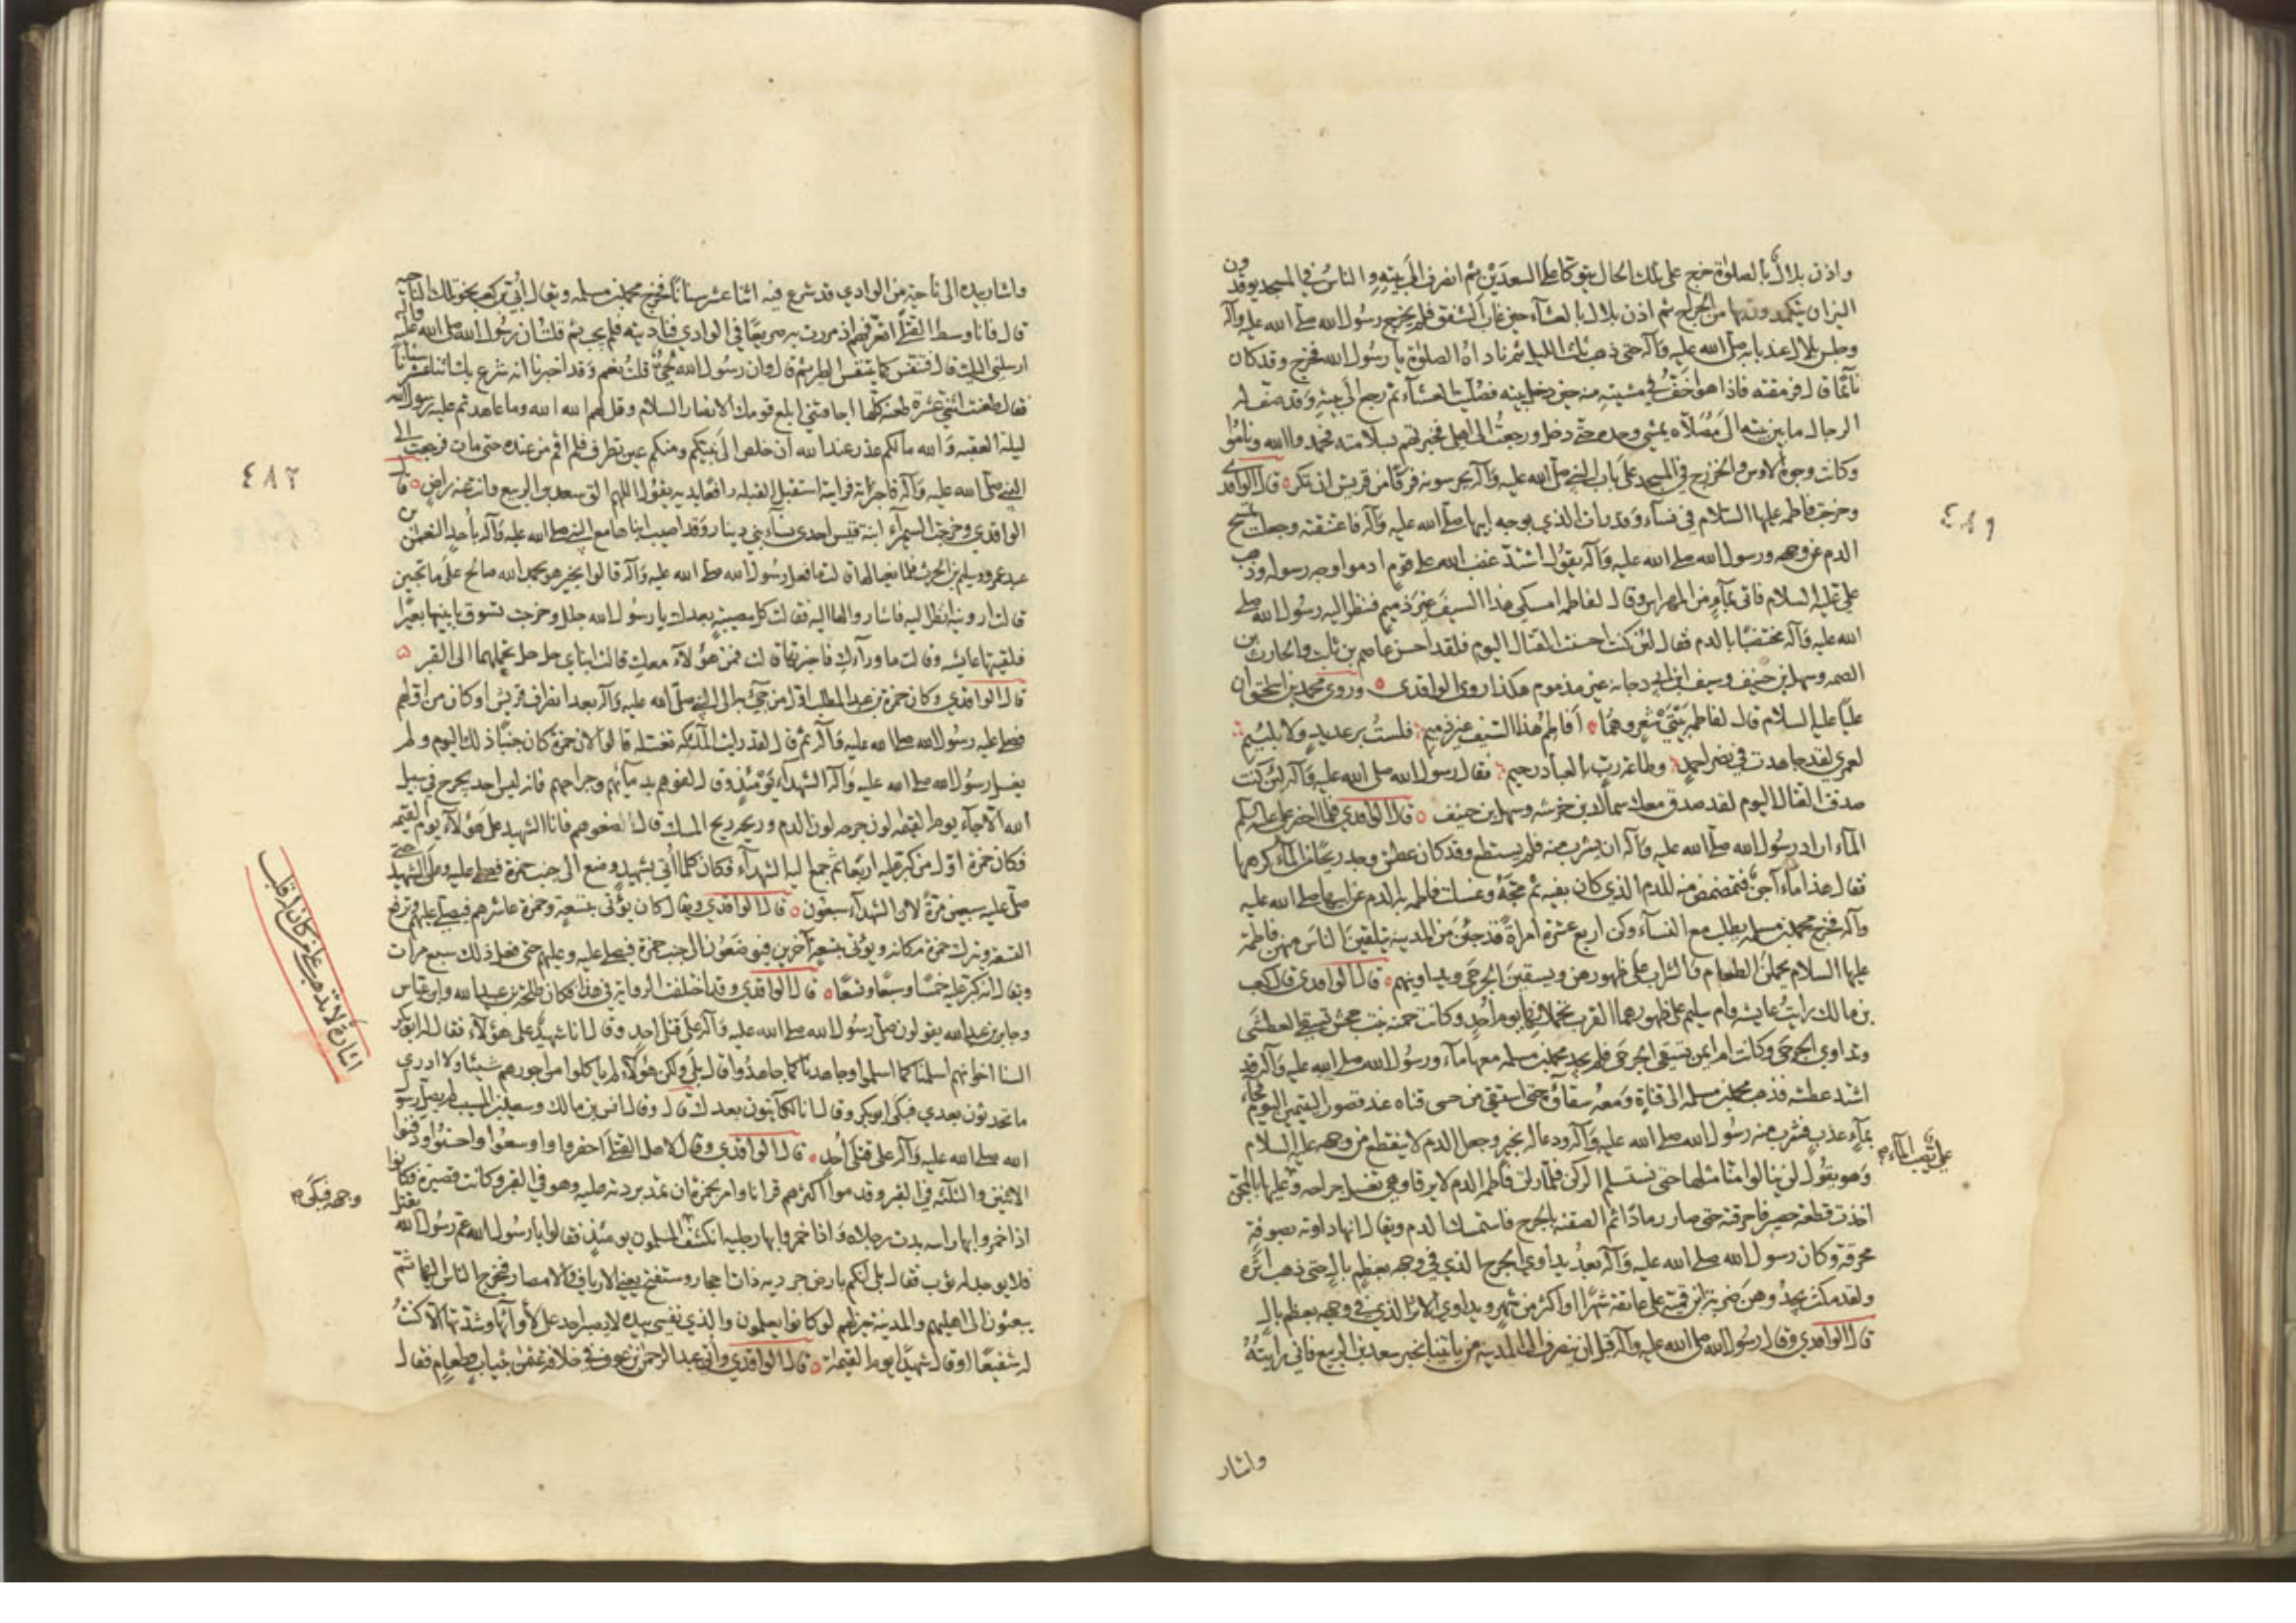 واذن بلال بالصلوة خرج على تلك الحال يتوكأ على السعدين ثم انصرف الى بيته والناس في المسجد يوقدون
النيران يتكمدون بها من الجراح ثم اذن بلال بالعشآء حين غاب الشفق فلم يخرج رسول الله صلى الله عليه وآله
وجلس بلال عند بابه صلى الله عليه وآله حتى ذهب ثلث الليل ثم ناداه الصلوة يا رسول الله فخرج وقد كان
نآئما قال فرمقته فاذا هو اخف في مشيته منه حين دخل بيته فصليت العشآء ثم رجع الى بيته وقد صف له
الرجال ما بين بيته الى مصلاه يمشي وحده حتى دخل ورجعت الى اهلي فخبرتهم بسلامته فحمدوا الله وناموا
وكانت وجوه الاوس والخزرج في المسجد على باب النبي صلى الله عليه وآله يحرسونه فرقا من قريش ان تكر قال الواقدي
وخرجت فاطمة عليها السلام في نسآء وقد رات الذي بوجه ابيها صلى الله عليه وآله فاعتنقته وجعلت تمسح
الدم عن وجهه ورسول الله صلى الله عليه وآله يقول اشتد غضب الله على قوم ادموا وجه رسوله وذهب
علي عليه السلام فاتى بمآء من المهراس وقال لفاطمة امسكي هذا السيف غير ذميم فنظر اليه رسول الله صلى
الله عليه وآله مختضبا بالدم فقال لئن كنت احسنت القتال اليوم فلقد احسن عاصم بن ثابت والحارث بن
الصمه وسهل بن حنيف وسيف ابي دجانه غير مذموم هكذا روى الواقدي وروى محمد بن اسحق ان
عليا عليه السلام قال لفاطمة بيتي شعر وهما أفاطم هذا السيف غير ذميم فلست برعديد ولا بلئيم
لعمري لقد جاهدت في نصر احمد وطاعة رب بالعباد رحيم فقال رسول الله صلى الله عليه وآله لئن كنت
صدقت القتال اليوم لقد صدق معك سماك بن خرشه وسهل بن حنيف قال الواقدي فلما احضر علي عليه السلم
المآء اراد رسول الله صلى الله عليه وآله ان يشرب منه فلم يستطع وقد كان عطش ووجد ريحا من المآء كرهها
فقال هذا مآء آجن فتمضمض منه للدم الذي كان بفيه ثم مجه وغسلت فاطمه به الدم عن ابيها صلى الله عليه
وآله فخرج محمد بن مسلمه يطلب مع النسآء وكن اربع عشرة امراة قد جئن من المدينه يتلقين الناس منهن فاطمة
عليها السلام يحملن الطعام والشراب على ظهورهن ويسقين الجرحى ويداوينهم قال الواقدي قال كعب
بن مالك رايت عايشه وام سليم على ظهورهما القرب تحملانها يوم احد وكانت حمنه بنت جحش تسقي العطشى
وتداوي الجرحى وكانت ام ايمن تسقي الجرحى فلم يجد محمد بن مسلمه معها مآء ورسول الله صلى الله عليه وآله قد
اشتد عطشه فذهب محمد بن مسلمه الى قناة ومعه سقاؤه حتى استقى من حسى قناه عند قصور التيميين اليوم فجآء
بمآء عذب فشرب منه رسول الله صلى الله عليه وآله ودعا له بخير وجعل الدم لا ينقطع من وجهه عليه السلام
وهو يقول لن ينالوا منا مثلها حتى نستلم الركن فلما رات فاطمه الدم لا يرقا وهي تغسل جراحه وعلي يصب المآء عليها بالمجن
اخذت قطعة حصير فاحرقته حتى صار رمادا ثم الصقته بالجرح فاستمسك الدم ويقال انها داوته بصوفة
محرقة وكان رسول الله صلى الله عليه وآله بعد يداوي الجرح الذي في وجهه بعظم بال حتى ذهب اثره
ولقد مكث يجد وهن ضربة ابن قميه على عاتقه شهرا او اكثر من شهر ويداوي الاثر الذي في وجهه بعظم بال
قال الواقدي وقال رسول الله صلى الله عليه وآله قبل ان ينصرف الى المدينه من ياتينا بخبر سعد بن الربيع فاني رايته
واشار
٤٨١
٤٨٢
واشار بيده الى ناحية من الوادي قد شرع فيه اثنا عشر سنانا فخرج محمد بن مسلمه ويقال ابي بن كعب نحو تلك الناحيه
قال فانا وسط القتلى اتعرفهم اذ مررت به صريعا في الوادي فناديته فلم يجب ثم قلت ان رسول الله صلى الله عليه وآله
ارسلني اليك قال فتنفس كما يتنفس الطير ثم قال وان رسول الله لحي قلت نعم وقد اخبرنا انه شرع لك اثنا عشر سنانا
فقال طعنت اثنتي عشرة طعنه كلها اجافتني ابلغ قومك الانصار السلام وقل لهم الله الله وما عاهدتم عليه رسول الله
ليلة العقبه والله ما لكم عذر عند الله ان خلص الى نبيكم ومنكم عين تطرف فلم ارم من عنده حتى مات فرجعت الى
النبي صلى الله عليه وآله فاخبرته فرايته استقبل القبله رافعا يديه يقول اللهم الق سعد بن الربيع وانت عنه راض قال
الواقدي وخرجت السمرآء ابنة قيس احدى نسآء بني دينار وقد اصيب ابناها مع النبي صلى الله عليه وآله باحد النعمن بن
عبد عمرو وسليم بن الحرث فلما نعيا لها قالت ما فعل رسول الله صلى الله عليه وآله قالوا بخير هو بحمد الله صالح على ما تحبين
قالت ارونيه انظر اليه فاشاروا لها اليه فقالت كل مصيبة بعدك يا رسول الله جلل وخرجت تسوق بابنيها بعيرا
فلقيتها عايشه وقالت ما ورآءك فاخبرتها قالت فمن هؤلآء معك قالت ابناي حل حل تحملهما الى القبر
قال الواقدي وكان حمزة بن عبد المطلب اول من جيء به الى النبي صلى الله عليه وآله بعد انصراف قريش او كان من اولهم
فصلى عليه رسول الله صلى الله عليه وآله ثم قال لقد رايت الملائكه تغسله قالوا لان حمزة كان جنبا ذلك اليوم ولم
يغسل رسول الله صلى الله عليه وآله الشهدآء يومئذ وقال لفوهم بدمآئهم وجراحهم فانه ليس احد يجرح في سبيل
الله الا جآء يوم القيمه لون جرحه لون الدم وريحه ريح المسك قال ضعوهم فانا الشهيد على هؤلآء يوم القيمه
فكان حمزة اول من كبر عليه اربعا ثم جمع اليه الشهدآء فكان كلما اتي بشهيد وضع الى جنب حمزة فصلى عليه وعلى الشهيد حتى
صلى عليه سبعين مرة لان الشهدآء سبعون قال الواقدي ويقال كان يؤتى بتسعة وحمزة عاشرهم فيصلي عليهم وترفع
التسعة وتترك حمزة مكانه ويؤتى بتسعة آخرين فيوضعون الى جنب حمزة فيصلي عليه وعليهم حتى فعل ذلك سبع مرات
ويقال انه كبر عليه خمسا وسبعا وتسعا قال الواقدي وقد اختلفت الرواية في هذا فكان طلحة بن عبيد الله وابن عباس
وجابر بن عبد الله يقولون صلى رسول الله صلى الله عليه وآله على قتلى احد وقال انا شهيد على هؤلآء فقال ابو بكر
السنا اخوانهم اسلمنا كما اسلموا وجاهدنا كما جاهدوا قال بلى ولكن هؤلآء لم ياكلوا من اجورهم شيئا ولا ادري
ما تحدثون بعدي فبكى ابو بكر وقال انا لكآئنون بعدك قال وقال انس بن مالك وسعيد بن المسيب لم يصل رسول
الله صلى الله عليه وآله على قتلى احد قال الواقدي وقال لاهل القتلى احفروا واوسعوا واحسنوا وادفنوا
الاثنين والثلثه في القبر وقدموا اكثرهم قرآنا وامر بحمزة ان تمد بردته عليه وهو في القبر وكانت قصيرة فكانوا
اذا خمروا بها راسه بدت رجلاه واذا خمروا بها رجليه انكشف وجهه فبكى المسلمون يومئذ فقالوا يا رسول الله عم رسول الله يقتل
فلا يوجد له ثوب فقال بلى انكم بارض جردية ذات احجار وستفتح يعني الارياف والامصار فيخرج الناس اليها ثم
يبعثون الى اهليهم والمدينة خير لهم لو كانوا يعلمون والذي نفسي بيده لا يصبر احد على لأوآئها وشدتها الا كنت
له شفيعا او قال شهيدا يوم القيمة قال الواقدي واتي عبد الرحمن بن عوف في خلافة عثمن بثياب وطعام فقال